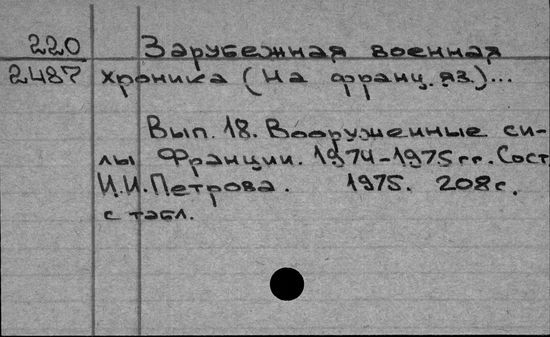 220 Зарубежная военная
2487 хроника (На франц. яз.)...
Вып. 18. Вооруженные си-
лы Франции. 1974-1975 гг. Сост.
И.И.Петрова. 1975. 208с.
с табл.